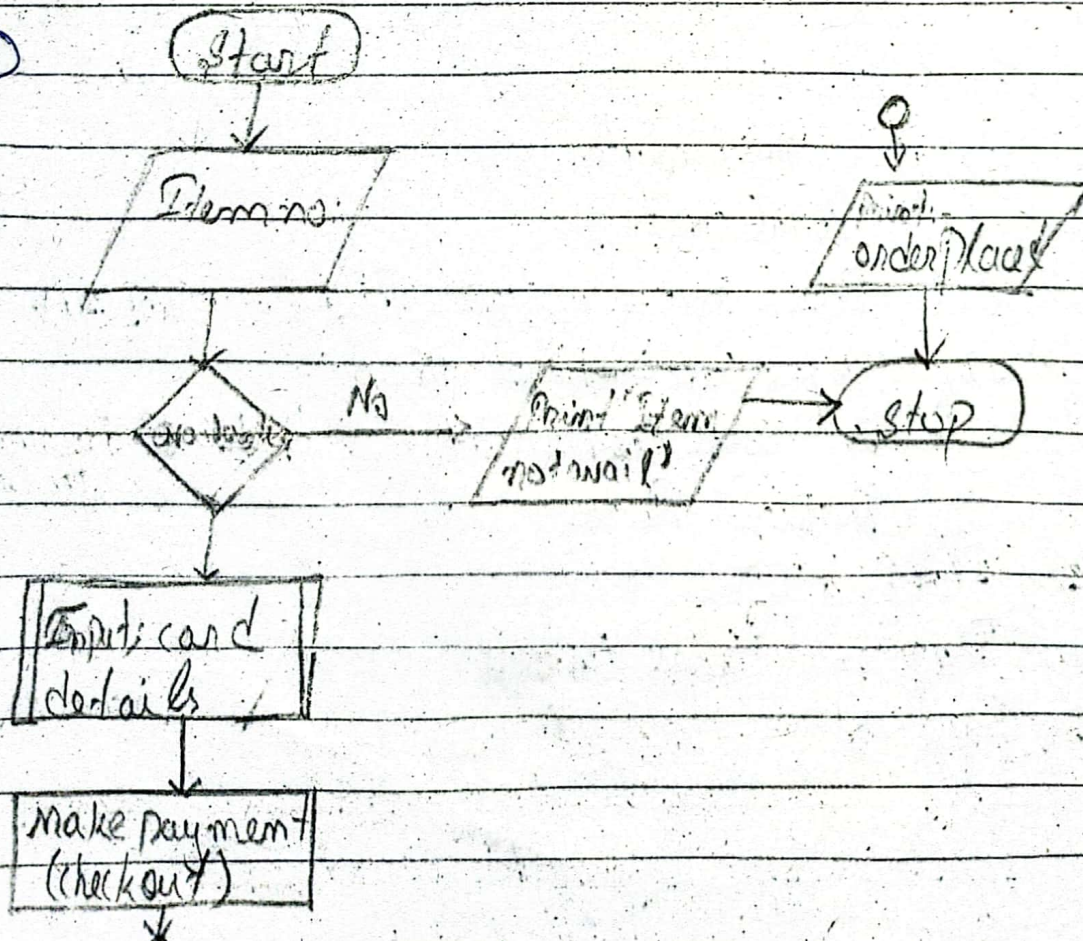 Start
Item no.
No
Print "Item
not avail"
Print:
order placed
Stop
Input: card
details
Make payment
(checkout)